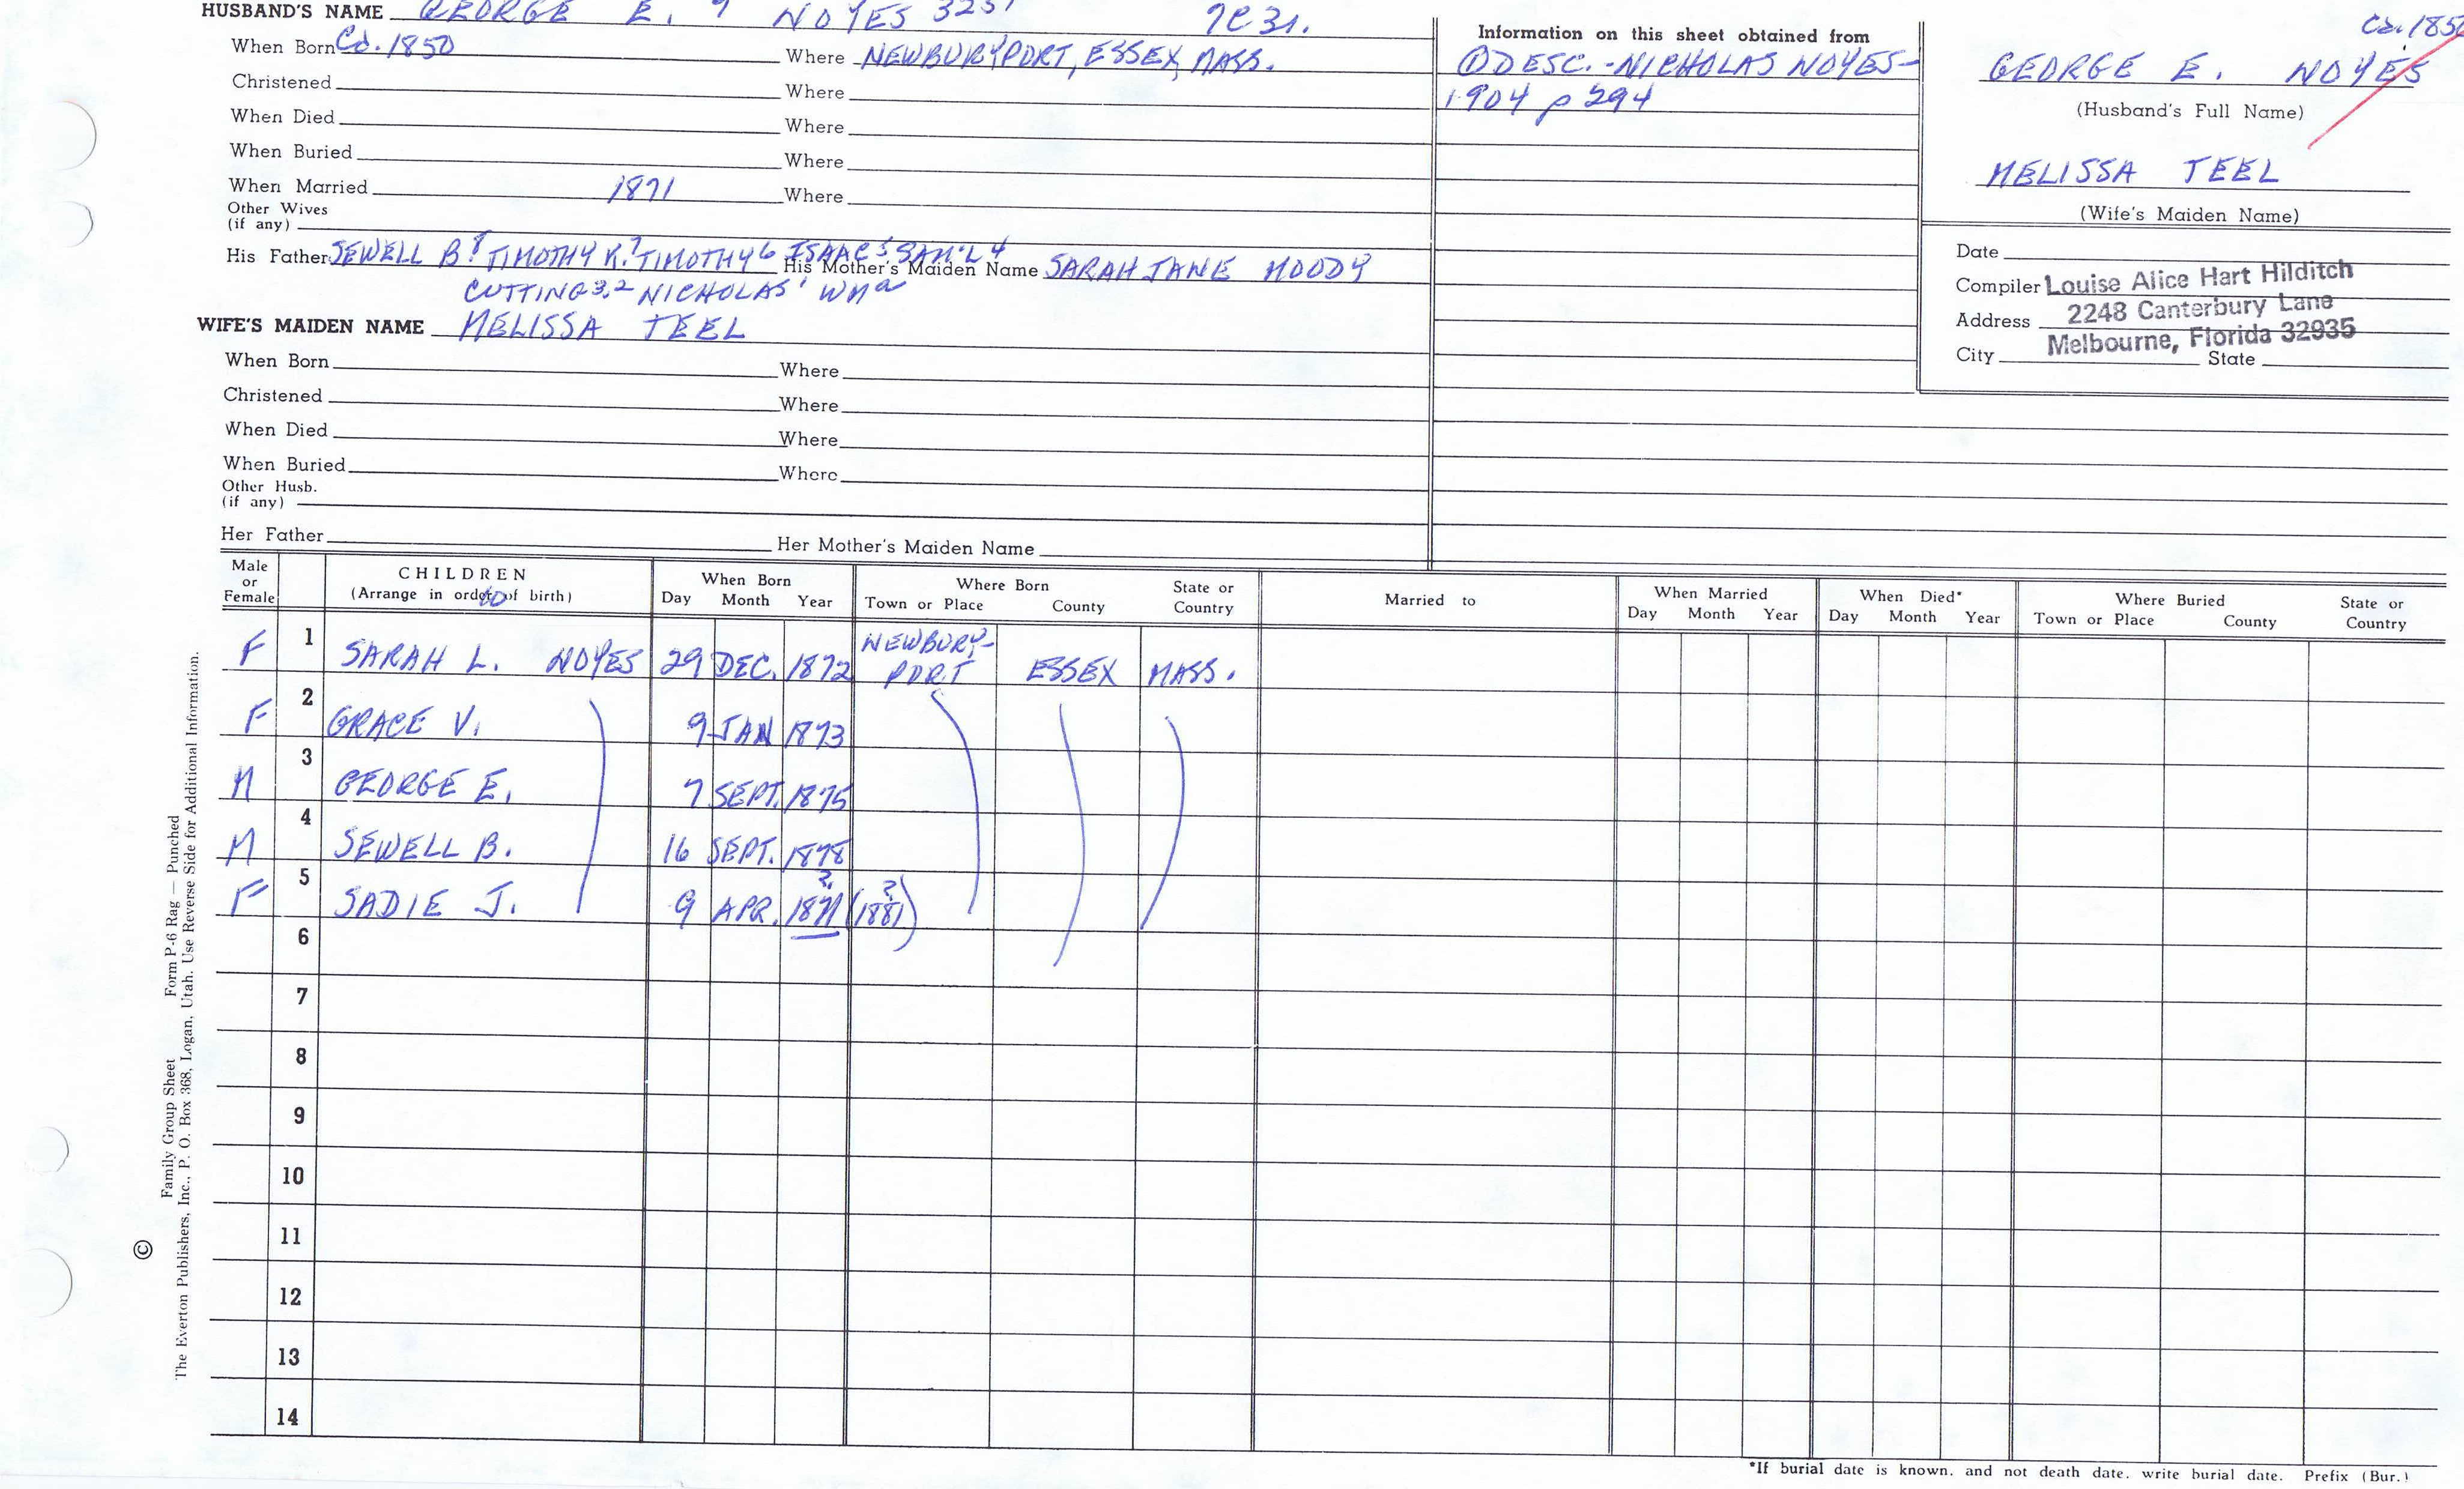 HUSBAND'S NAME GEORGE E. 9 NOYES 3231 7C31.
When Born Ca. 1850 Where NEWBURYPORT, ESSEX, MASS.
Christened Where
When Died Where
When Buried Where
When Married 1871 Where
Other Wives
(if any)
His Father SEWELL B.8 TIMOTHY K.7 TIMOTHY6 ISAAC5 SAM'L4 His Mother's Maiden Name SARAH JANE MOODY
CUTTING3,2 NICHOLAS1 WMa
WIFE'S MAIDEN NAME MELISSA TEEL
When Born Where
Christened Where
When Died Where
When Buried Where
Other Husb.
(if any)
Her Father Her Mother's Maiden Name
Information on this sheet obtained from
① DESC.-NICHOLAS NOYES-
1904 p 294
Ca. 1850
GEORGE E. NOYES
(Husband's Full Name)
MELISSA TEEL
(Wife's Maiden Name)
Date
Compiler Louise Alice Hart Hilditch
Address 2248 Canterbury Lane
Melbourne, Florida 32935
City State
Male or Female CHILDREN (Arrange in order of birth) When Born Day Month Year Where Born Town or Place County State or Country Married to When Married Day Month Year When Died* Day Month Year Where Buried Town or Place County State or Country
F 1 SARAH L. NOYES 29 DEC. 1872 NEWBURY-PORT ESSEX MASS.
F 2 GRACE V. 9 JAN 1873
M 3 GEORGE E. 7 SEPT. 1875
M 4 SEWELL B. 16 SEPT. 1878
F 5 SADIE J. 9 APR. 1871? (1881?)
6
7
8
9
10
11
12
13
14
*If burial date is known, and not death date, write burial date. Prefix (Bur.)
© Family Group Sheet Form P-6 Rag — Punched
The Everton Publishers, Inc., P. O. Box 368, Logan, Utah. Use Reverse Side for Additional Information.